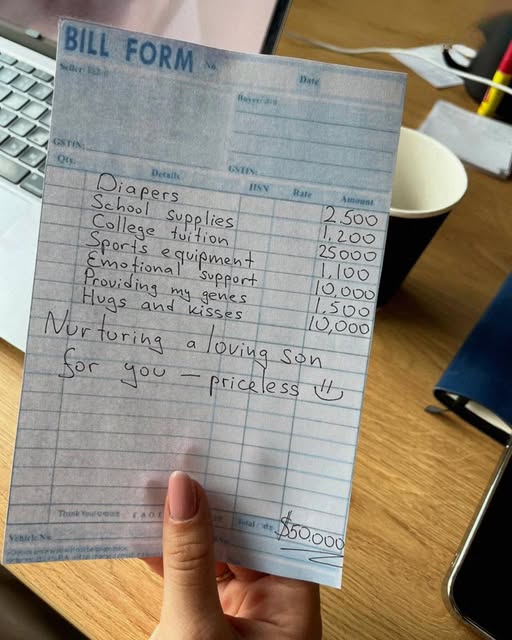 BILL FORM No.
Date
Seller:
Buyer:
GSTIN:
GSTIN:
Qty. Details HSN Rate Amount
Diapers 2,500
School supplies 1,200
College tuition 25000
Sports equipment 1,100
Emotional support 10,000
Providing my genes 1,500
Hugs and kisses 10,000
Nurturing a loving son
for you – priceless
Thank You E & O E Total $50,000
Vehicle No